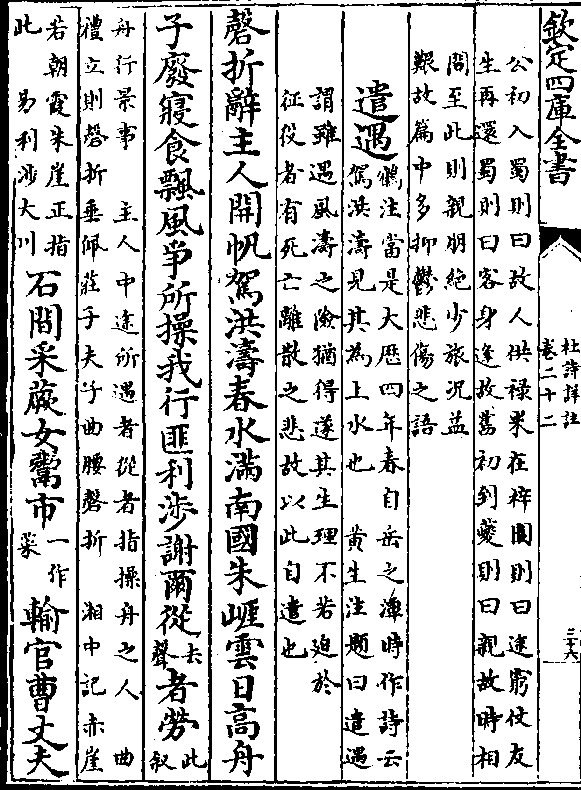 欽定四庫全書
杜詩詳註
卷二十二
三十六
公初入蜀則曰故人供祿米在梓閬則曰途窮仗友
生再還蜀則曰客身逢故舊初到夔則曰親故時相
問至此則親朋絕少旅況益
艱故篇中多抑鬱悲傷之語
遣遇
鶴注當是大厯四年春自岳之潭時作詩云
駕洪濤見其為上水也　黃生注題曰遣遇
謂雖遇風濤之險猶得遂其生理不若迫於
征役者有死亡離散之悲故以此自遣也
磬折辭主人開帆駕洪濤春水滿南國朱崖雲日高舟
子廢寢食飄風爭所操我行匪利涉謝爾從去聲者勞此叙
舟行景事　主人中途所遇者從者指操舟之人　曲
禮立則磬折垂佩莊子夫子曲腰磬折　湘中記赤崖
若朝霞朱崖正指
此　易利涉大川
石間采蕨女鬻市一作菜輸官曹丈夫